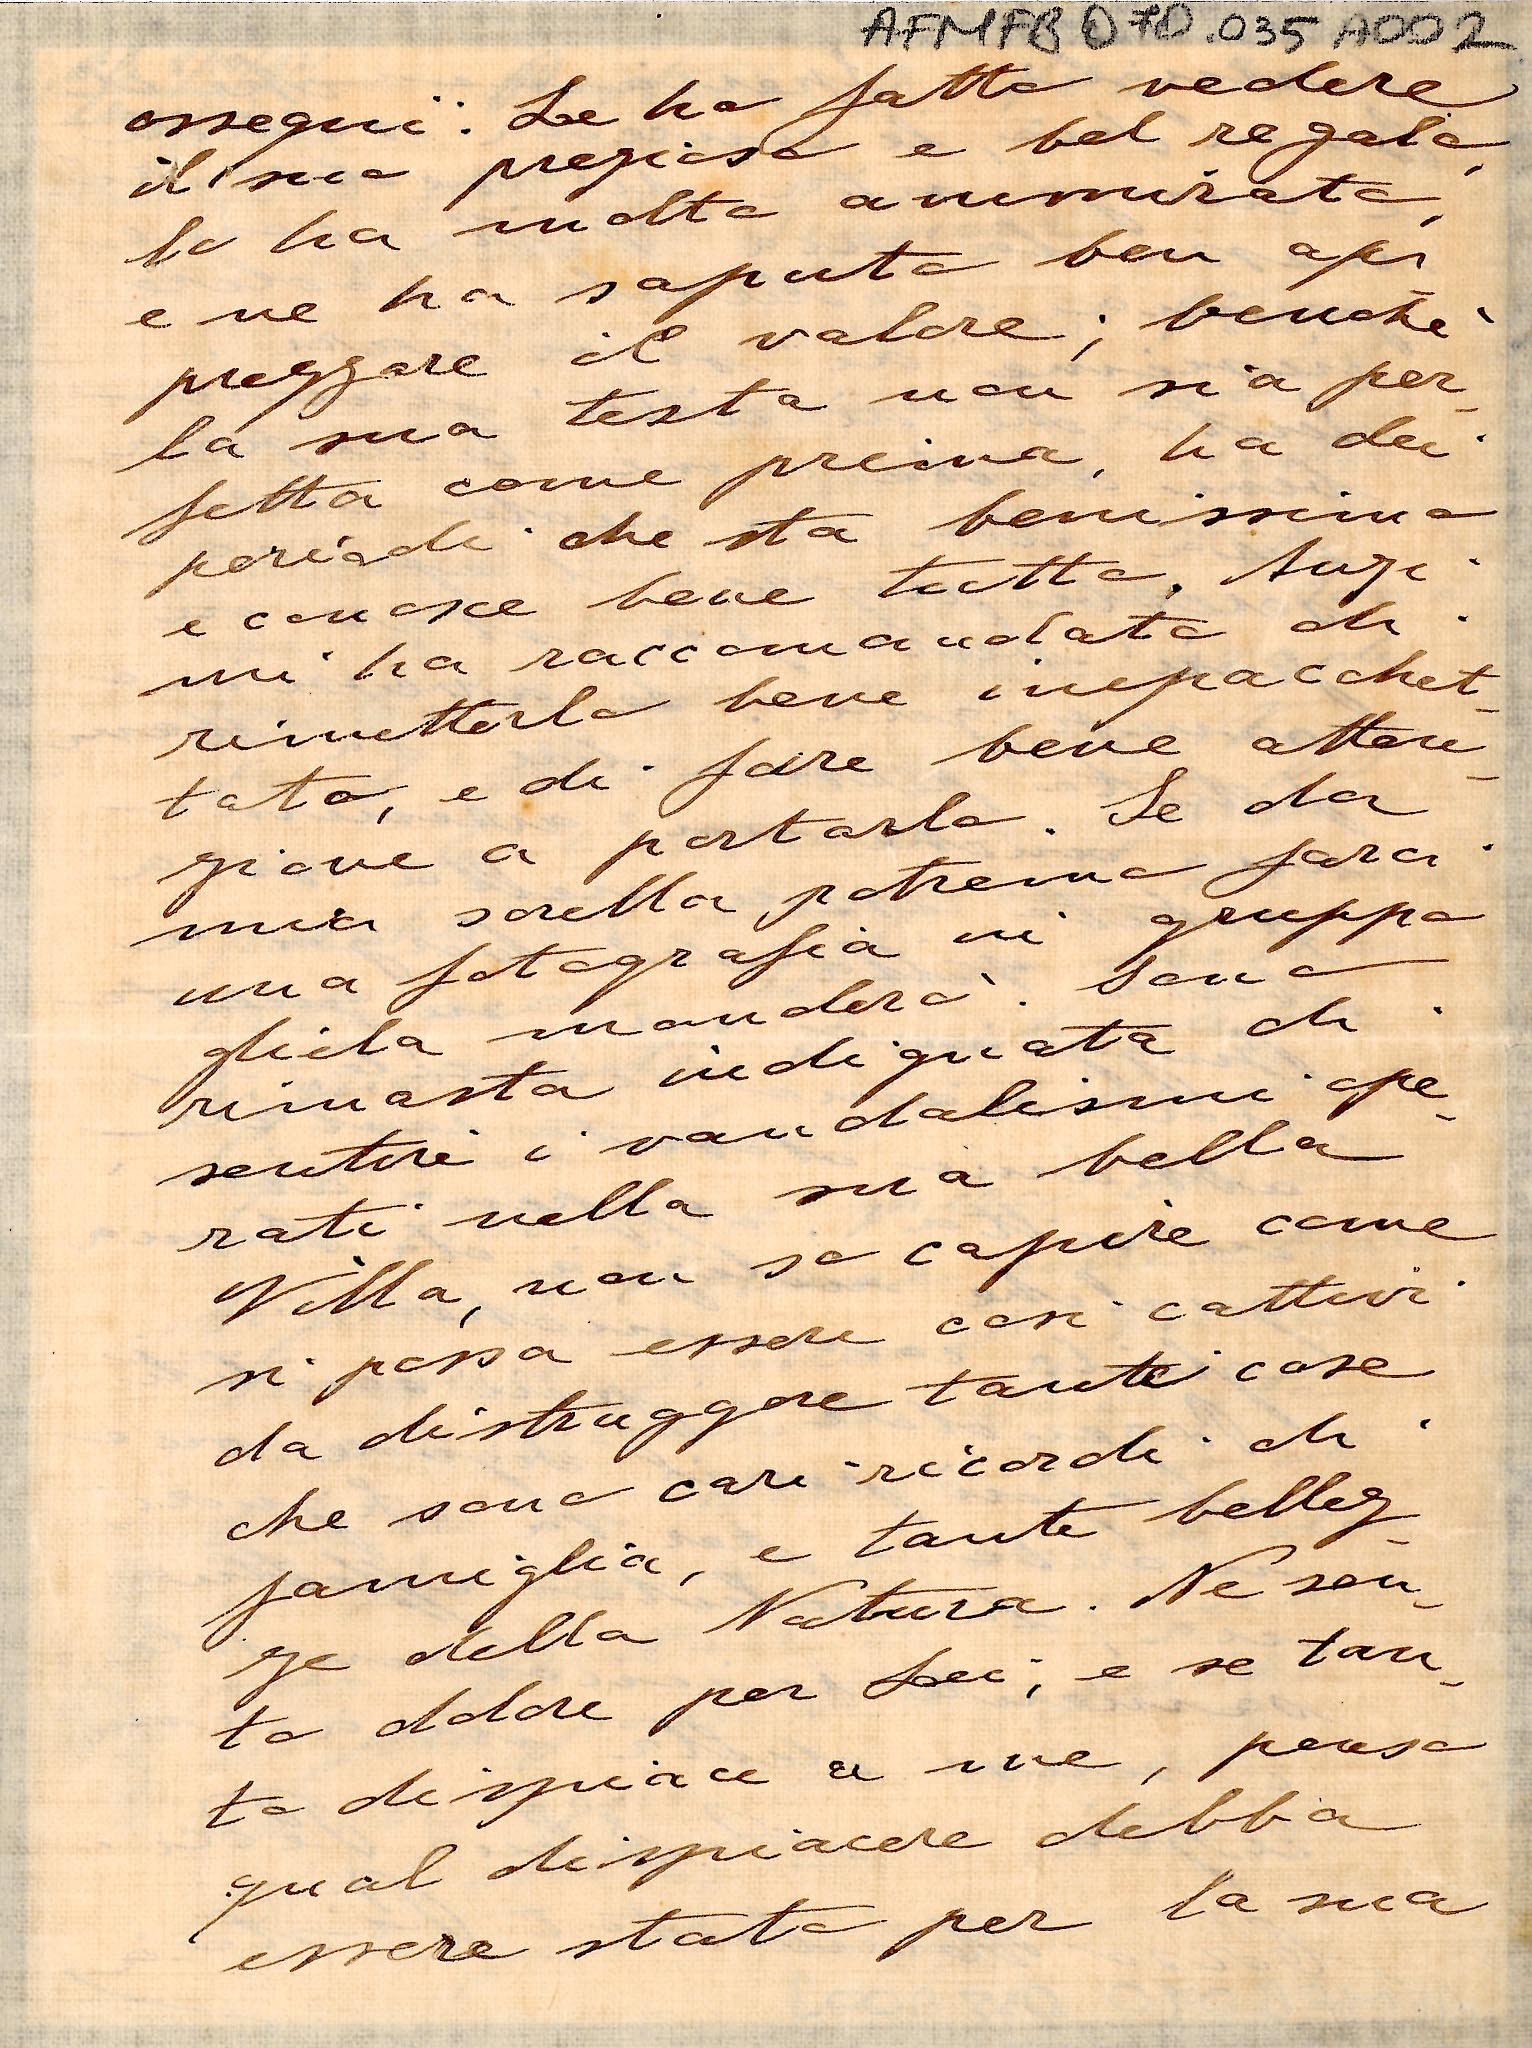 AFMFB D7D.035 A002
ossequi. Le ho fatto vedere
il suo prezioso e bel regalo,
lo ha molto ammirato,
e ne ha saputo ben ap-
prezzare il valore; benchè
la sua testa non sia per-
fetta come prima, ha dei
periodi che sta benissimo
e conosce bene tutto. Anzi
mi ha raccomandato di
rimetterlo bene impacchet-
tato, e di fare bene atten-
zione a portarlo. Se da
mia sorella potremo farci
una fotografia in gruppo
gliela manderò. Sono
rimasta indignata di
sentire i vandalismi ope-
rati nella sua bella
Villa, non so capire come
si possa essere così cattivi
da distruggere tante cose
che sono cari ricordi di
famiglia, e tante bellez-
ze della Natura. Ne sen-
to dolore per Lei, e se tan-
to dispiace a me, penso
qual dispiacere debba
essere stato per la sua